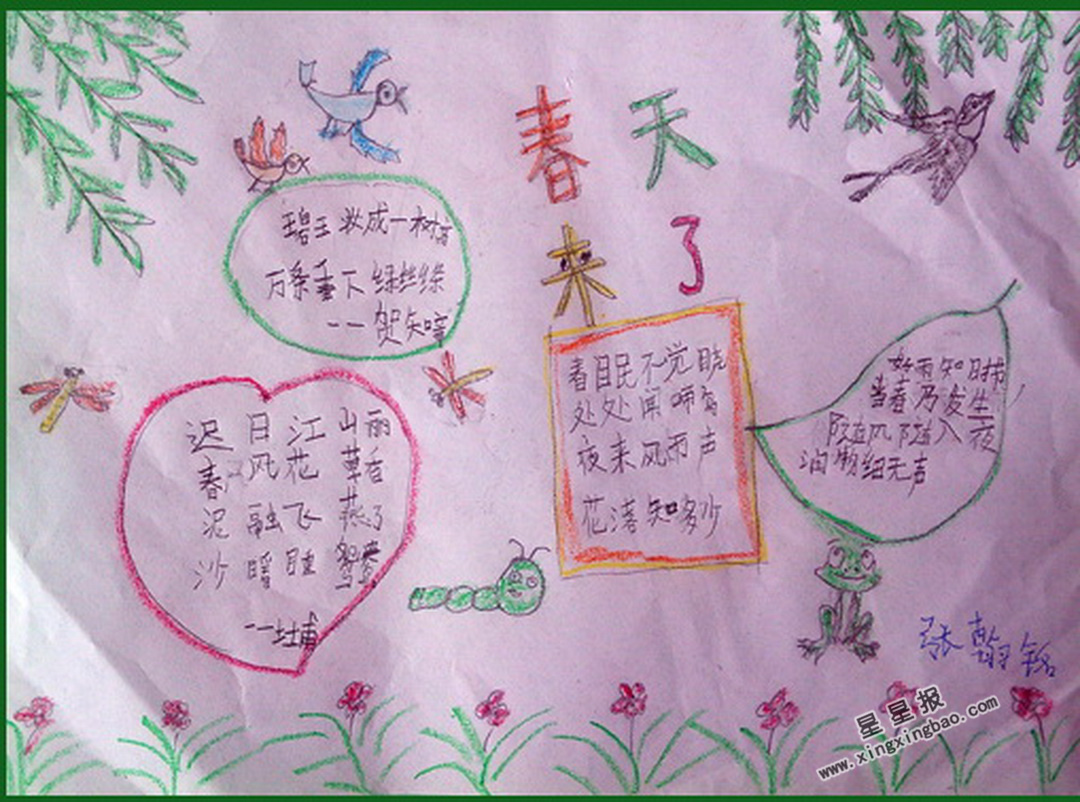 春天
来了
碧王妆成一树高
万条垂下绿丝绦
——贺知章
春眠不觉晓
处处闻啼鸟
夜来风雨声
花落知多少
好雨知时节
当春乃发生
随风随入夜
润物细无声
迟日江山丽
春风花草香
泥融飞燕了
沙暖睡鸳鸯
——杜甫
张翰铭
星星报
www.xingxingbao.com